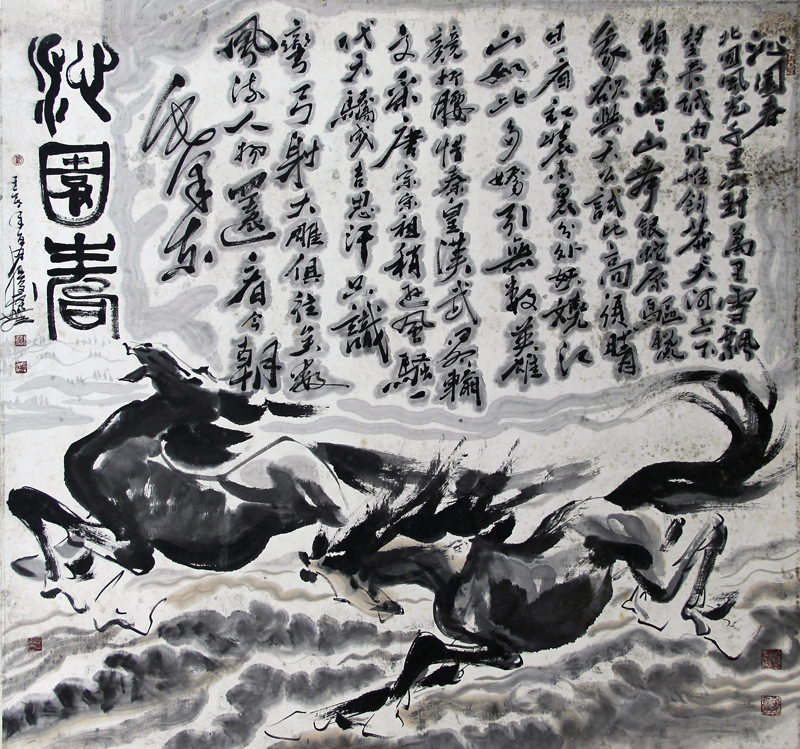 沁园春
北国風光千里冰封萬里雪飄
望长城内外惟餘莽莽大河上下
頓失滔滔山舞銀蛇原驅臘
象欲與天公試比高須晴
日看红装素裹分外妖嬈江
山如此多嬌引無数英雄
競折腰惜秦皇漢武略輸
文采唐宗宋祖稍逊風騷一
代天驕成吉思汗只識
彎弓射大雕俱往矣数
風流人物還看今朝
毛泽东
沁園春